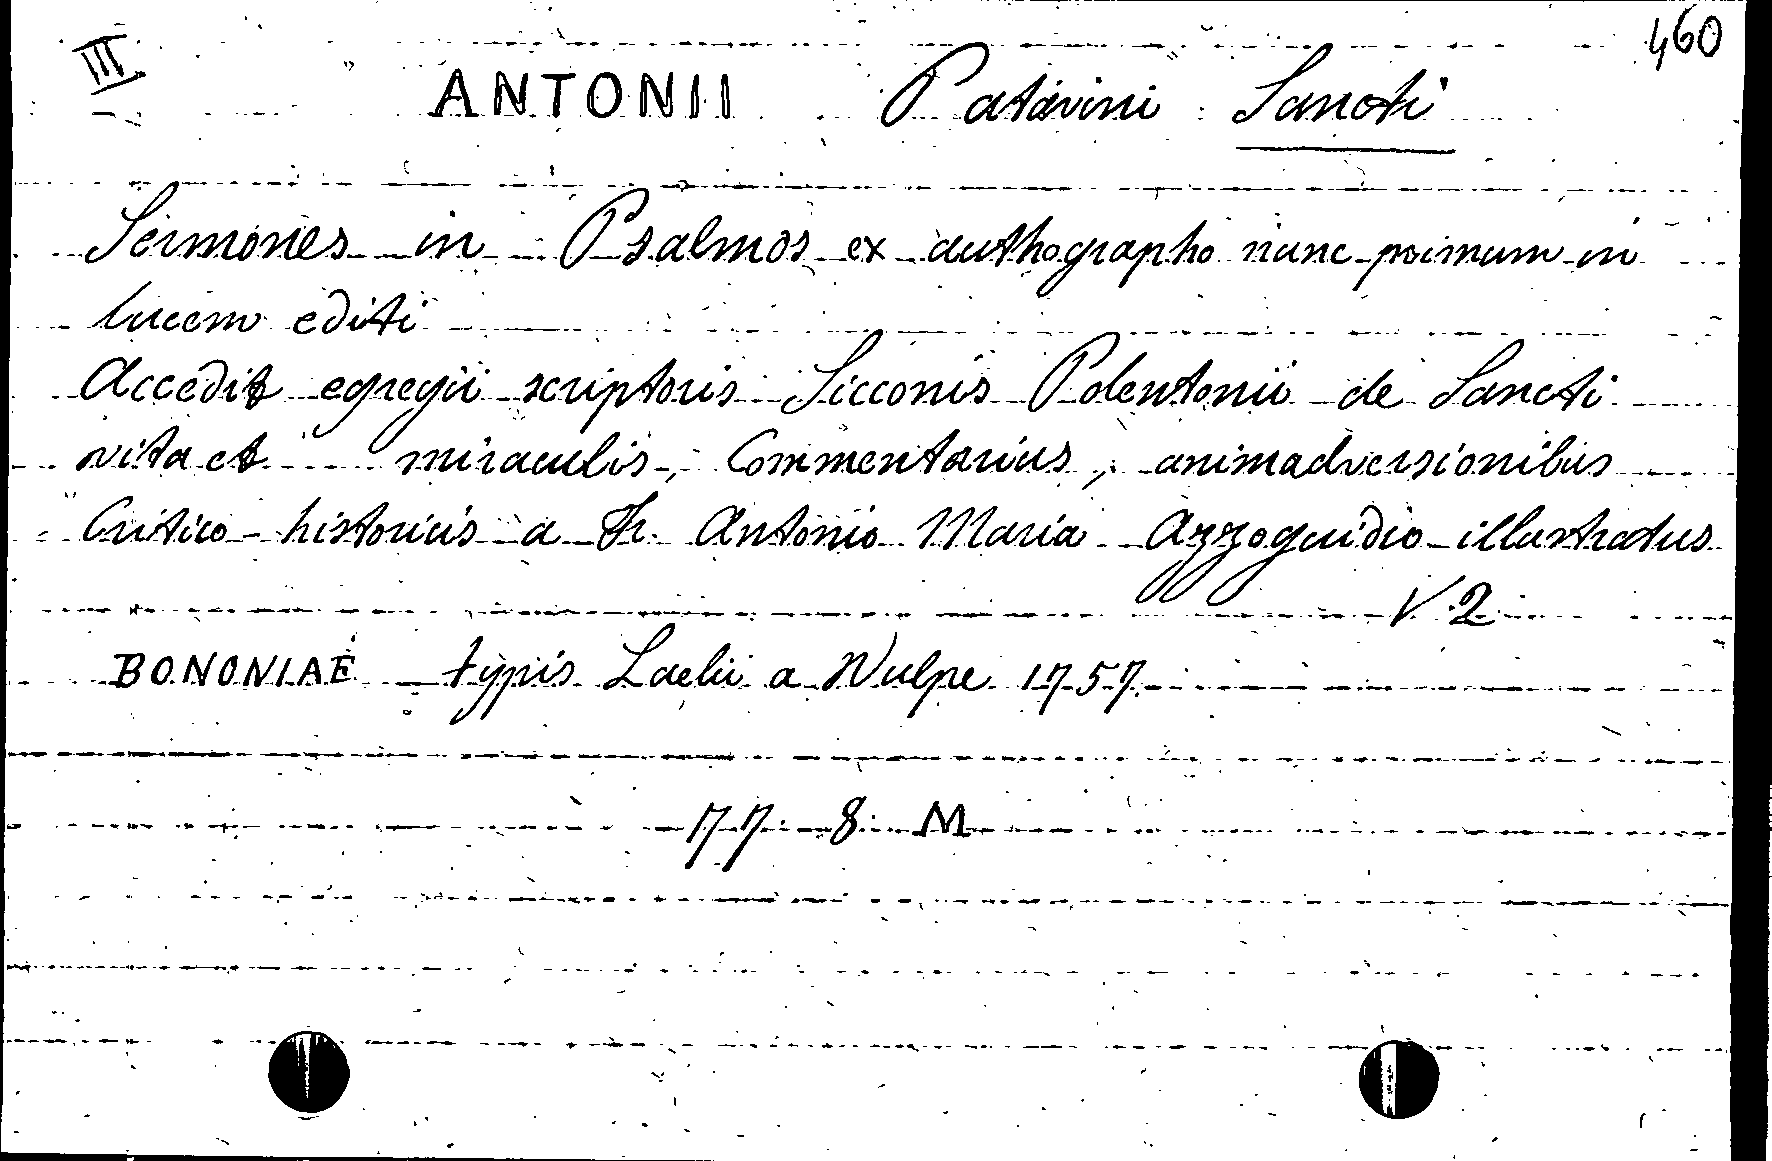 III
460
ANTONII Patavini Sancti
Sermones in Psalmos ex authographo nunc primum in
lucem editi
Accedit egregii scriptoris Sicconis Polentonii de Sancti
vita et miraculis, Commentarius, animadversionibus
Critico-historicis a Fr. Antonio Maria Azzoguidio illustratus
V. 2
BONONIAE typis Laelii a Wulpe 1757
77 8 M